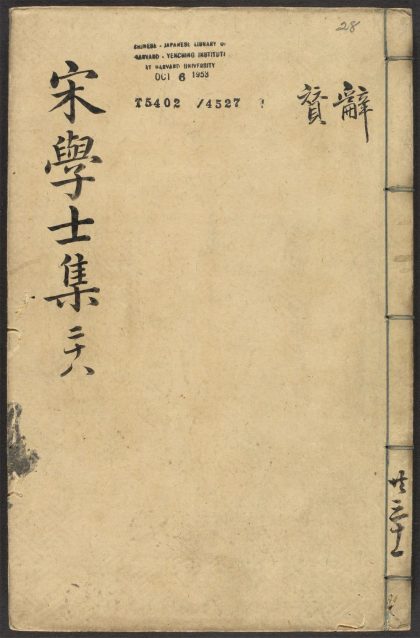 28
CHINESE - JAPANESE LIBRARY OF
HARVARD - YENCHING INSTITUTE
AT HARVARD UNIVERSITY
OCT 6 1953
T5402 /4527
辭
贊
宋學士集 二十八
共三十一